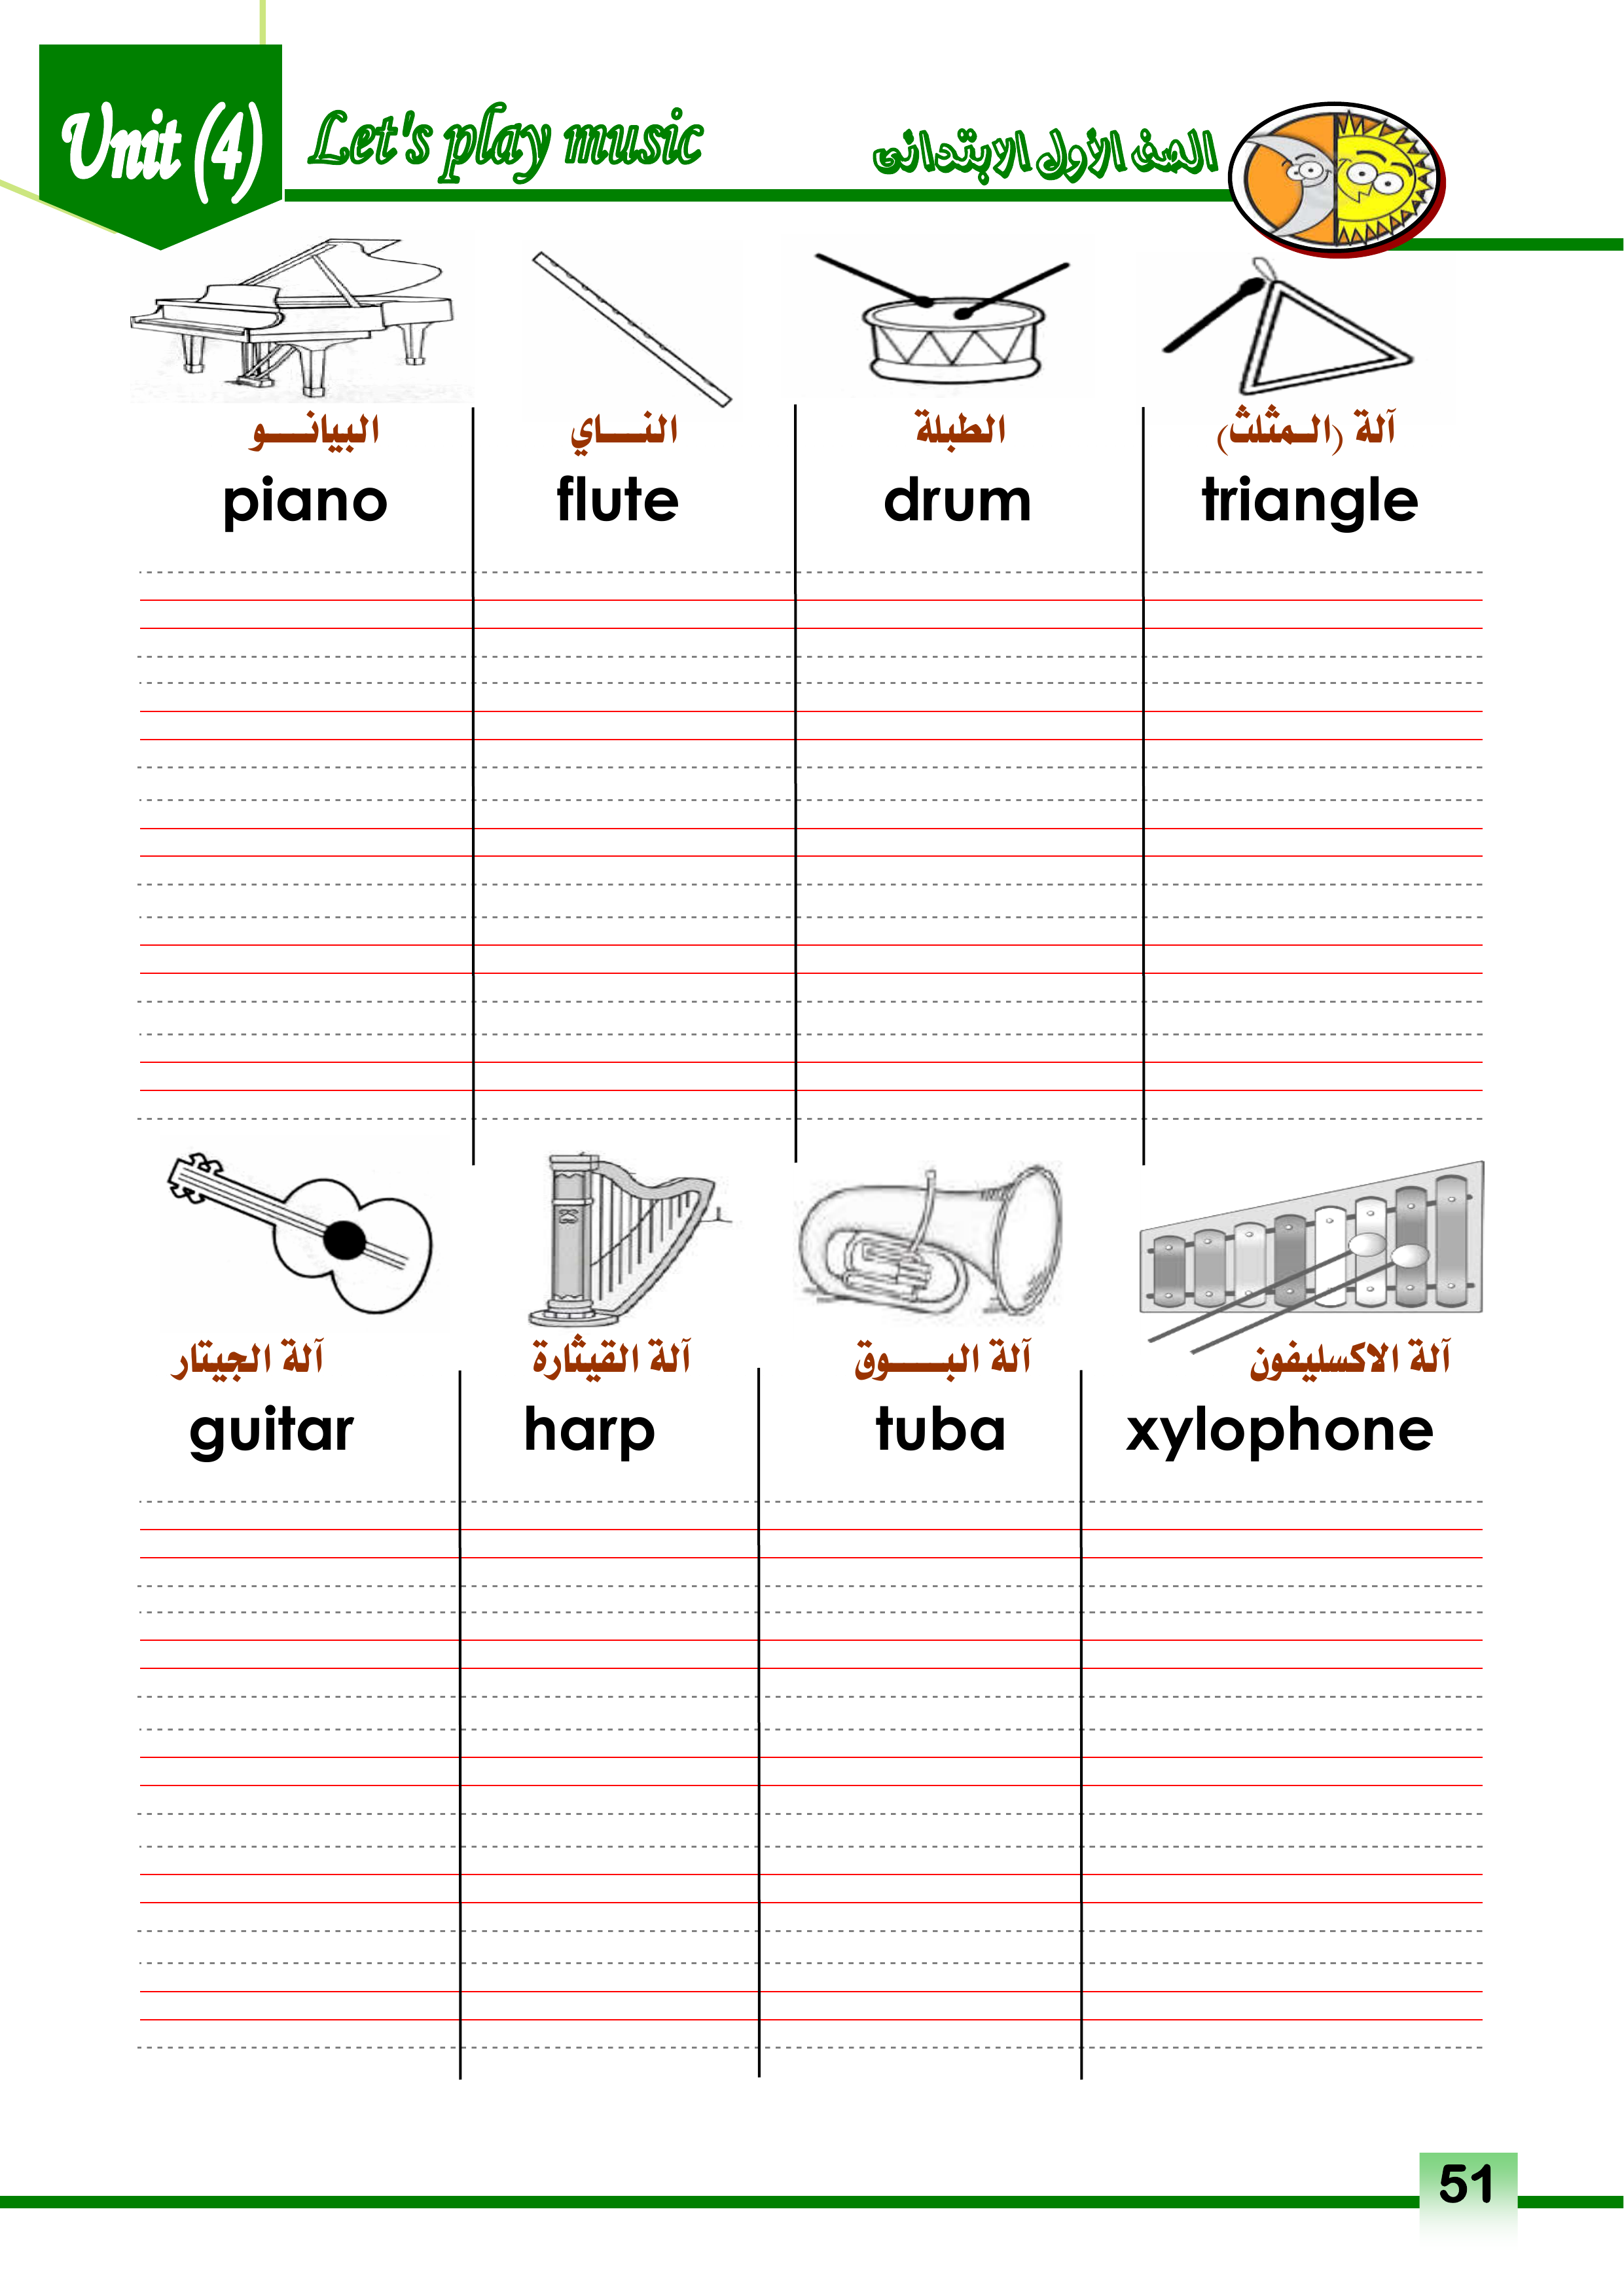 Unit (4)
Let's play music
الصف الأول الابتدائى
البيانــو النــاي الطبلة آلة (الـمثلث)
piano flute drum triangle
آلة الجيتار آلة القيثارة آلة البـــوق آلة الاكسليفون
guitar harp tuba xylophone
51